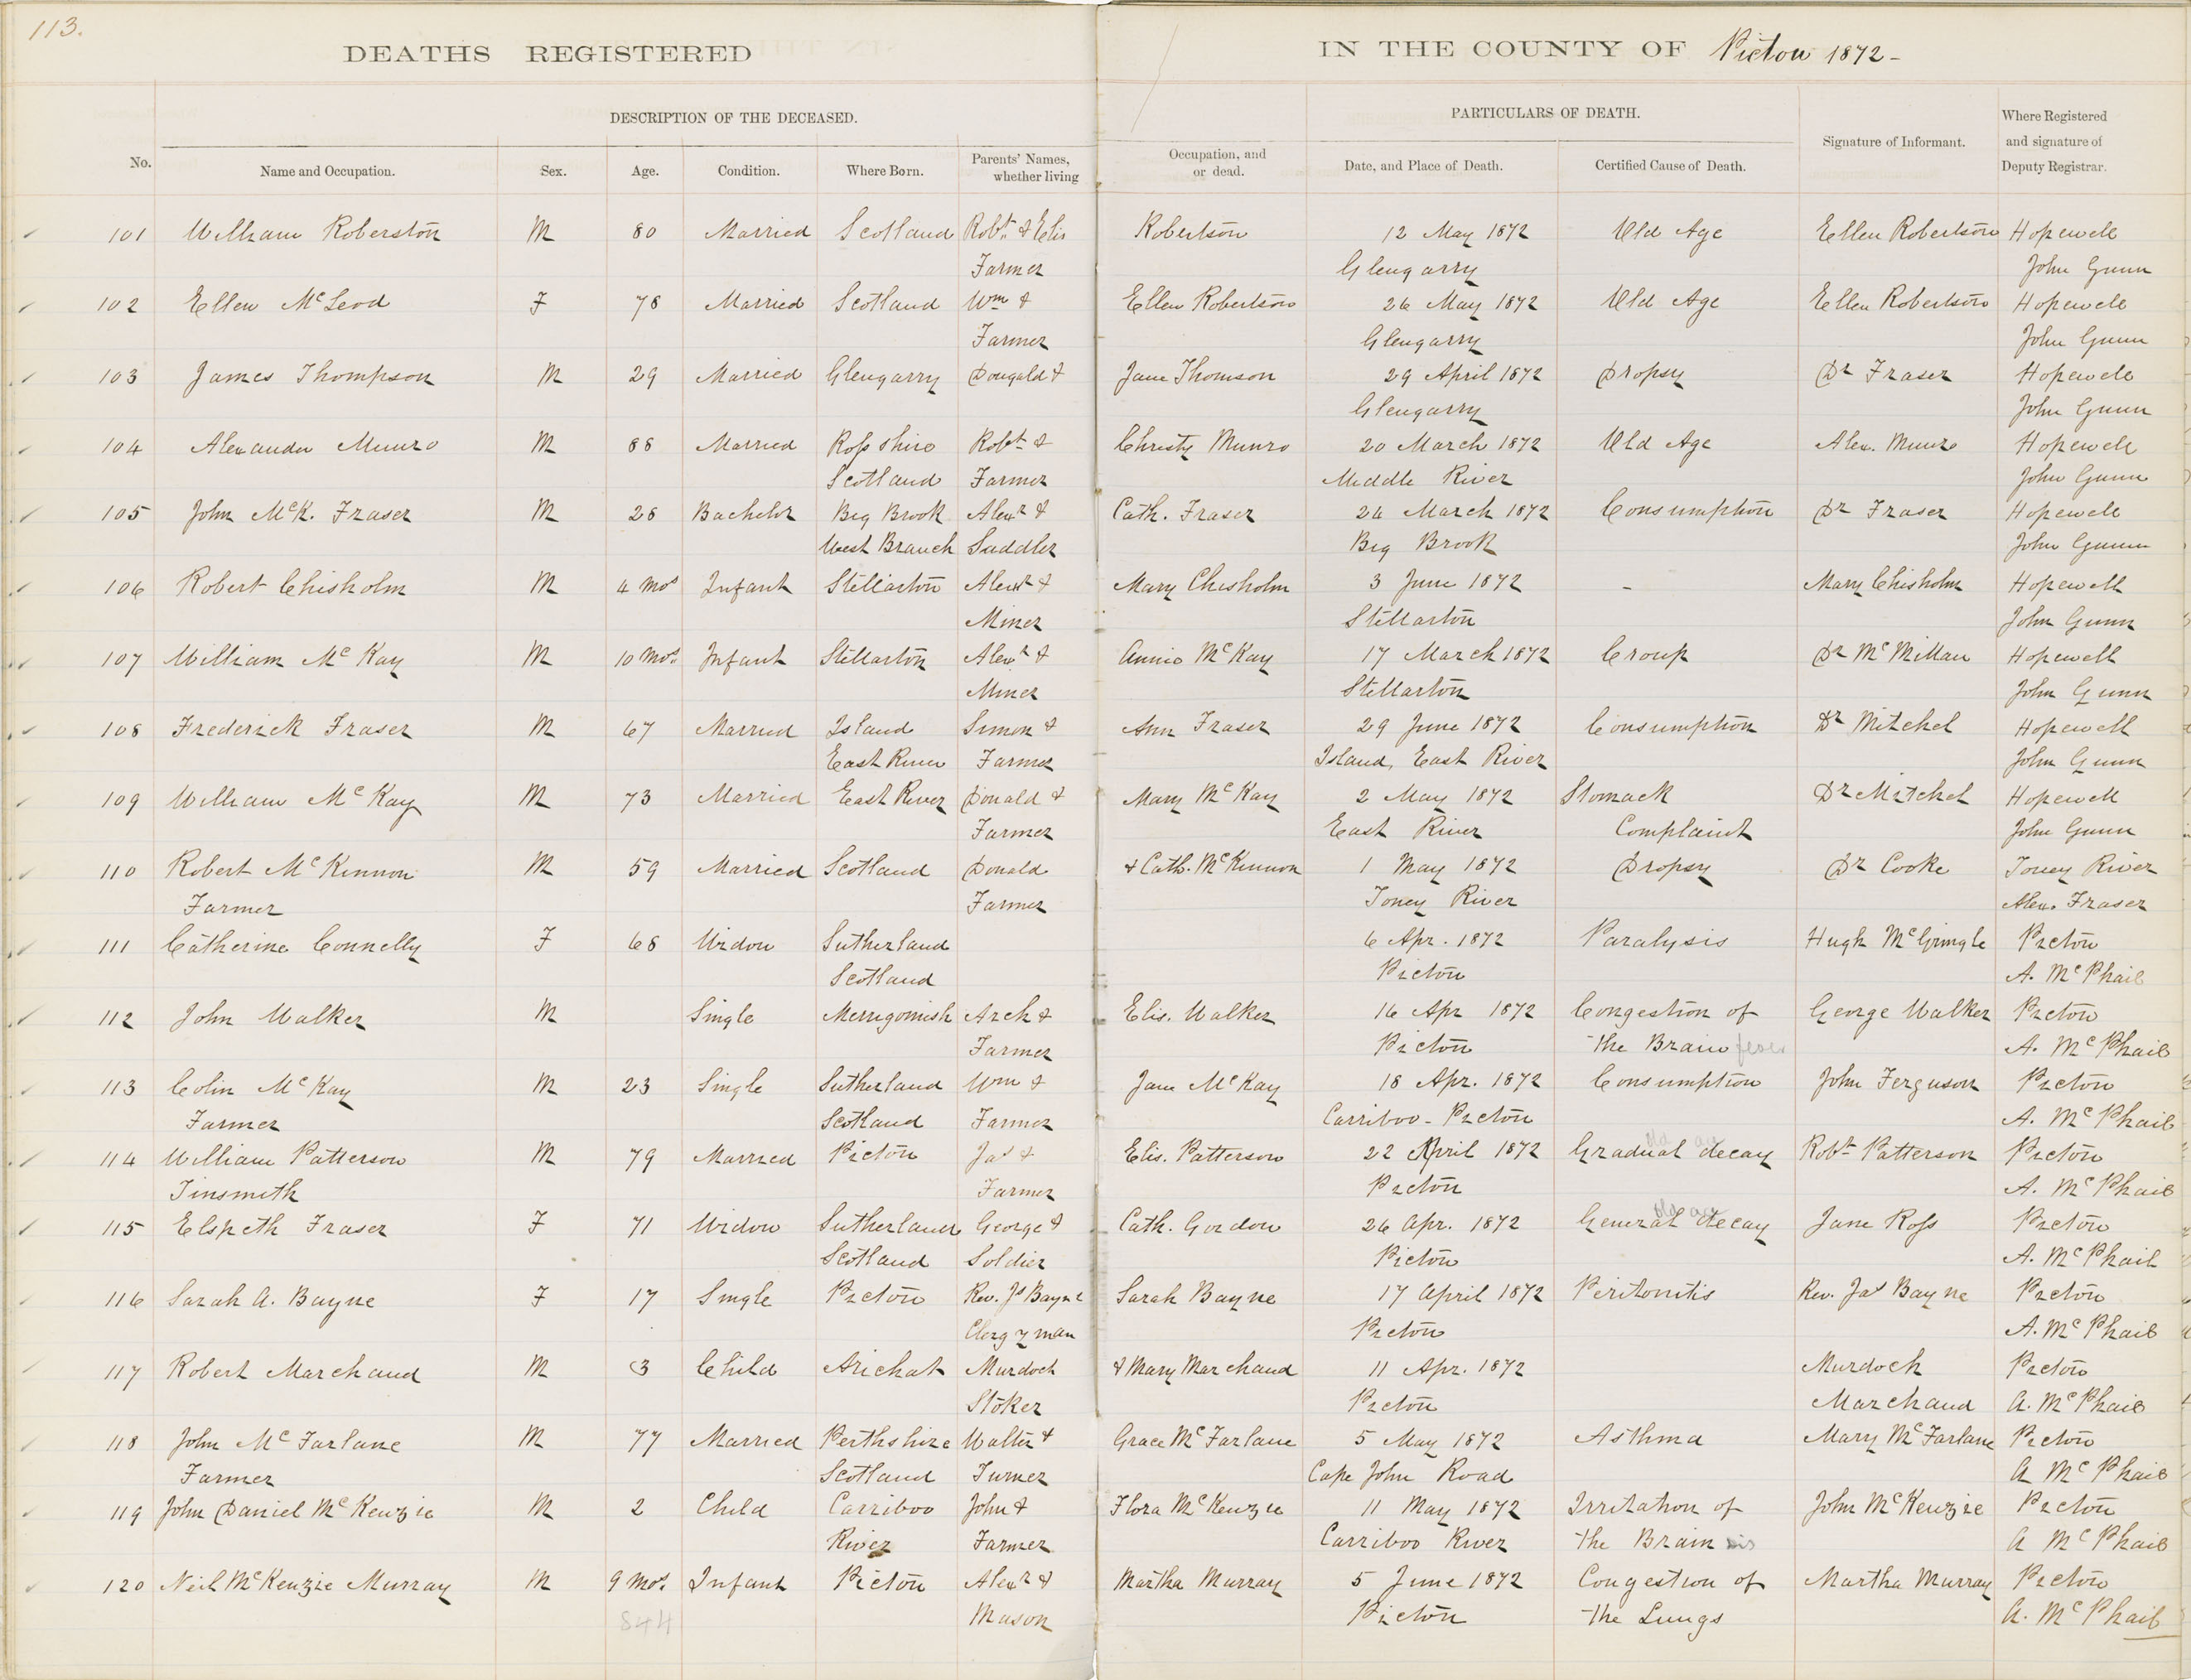 113.
DEATHS REGISTERED IN THE COUNTY OF Pictou 1872-
DESCRIPTION OF THE DECEASED. PARTICULARS OF DEATH.
No. Name and Occupation. Sex. Age. Condition. Where Born. Parents' Names, whether living Occupation, and or dead. Date, and Place of Death. Certified Cause of Death. Signature of Informant. Where Registered and signature of Deputy Registrar.
101 William Roberston M 80 Married Scotland Robt. & Elis Robertson 12 May 1872 Old Age Ellen Robertson Hopewell
Farmer Glengarry John Gunn
102 Ellen McLeod F 78 Married Scotland Wm & Ellen Robertson 26 May 1872 Old Age Ellen Robertson Hopewell
Farmer Glengarry John Gunn
103 James Thompson M 29 Married Glengarry Dougald & Jane Thomson 29 April 1872 Dropsy Dr Fraser Hopewell
Glengarry John Gunn
104 Alexander Munro M 88 Married Ross shire Robt & Christy Munro 20 March 1872 Old Age Alex. Munro Hopewell
Scotland Farmer Middle River John Gunn
105 John McK. Fraser M 28 Bachelor Big Brook Alexr & Cath. Fraser 24 March 1872 Consumption Dr Fraser Hopewell
West Branch Saddler Big Brook John Gunn
106 Robert Chisholm M 4 Mos Infant Stellarton Alexr & Mary Chisholm 3 June 1872 - Mary Chisholm Hopewell
Miner Stellarton John Gunn
107 William McKay M 10 Mos. Infant Stellarton Alexr & Annie McKay 17 March 1872 Croup Dr McMillan Hopewell
Miner Stellarton John Gunn
108 Frederick Fraser M 67 Married Island Simon & Ann Fraser 29 June 1872 Consumption Dr Mitchel Hopewell
East River Farmer Island, East River John Gunn
109 William McKay M 73 Married East River Donald & Mary McKay 2 May 1872 Stomack Dr Mitchel Hopewell
Farmer East River Complaint John Gunn
110 Robert McKinnon M 59 Married Scotland Donald & Cath. McKinnon 1 May 1872 Dropsy Dr Cooke Toney River
Farmer Farmer Toney River Alex. Fraser
111 Catherine Connelly F 68 Widow Sutherland 6 Apr. 1872 Paralysis Hugh McGringle Pictou
Scotland Pictou A. McPhail
112 John Walker M Single Merrigomish Arch & Elis. Walker 16 Apr 1872 Congestion of George Walker Pictou
Farmer Pictou the Brain A. McPhail
113 Colin McKay M 23 Single Sutherland Wm & Jane McKay 18 Apr. 1872 Consumption John Ferguson Pictou
Farmer Scotland Farmer Carriboo - Pictou A. McPhail
114 William Patterson M 79 Married Pictou Jas & Elis. Patterson 22 April 1872 Gradual decay Robt Patterson Pictou
Tinsmith Farmer Pictou A. McPhail
115 Elspeth Fraser F 71 Widow Sutherland George & Cath. Gordon 26 Apr. 1872 General decay Jane Ross Pictou
Scotland Soldier Pictou A. McPhail
116 Sarah A. Bayne F 17 Single Pictou Rev. Js Bayne Sarah Bayne 17 April 1872 Peritonitis Rev. Jas Bayne Pictou
Clergyman Pictou A. McPhail
117 Robert Marchaud M 3 Child Arichat Murdoch & Mary Marchaud 11 Apr. 1872 Murdoch Pictou
Stoker Pictou Marchaud A. McPhail
118 John McFarlane M 77 Married Perthshire Walter & Grace McFarlane 5 May 1872 Asthma Mary McFarlane Pictou
Farmer Scotland Turner Cape John Road A McPhail
119 John Daniel McKenzie M 2 Child Carriboo John & Flora McKenzie 11 May 1872 Irritation of John McKenzie Pictou
River Farmer Carriboo River the Brain A McPhail
120 Neil McKenzie Murray M 9 Mos. Infant Pictou Alexr & Martha Murray 5 June 1872 Congestion of Martha Murray Pictou
844 Mason Pictou the Lungs A. McPhail